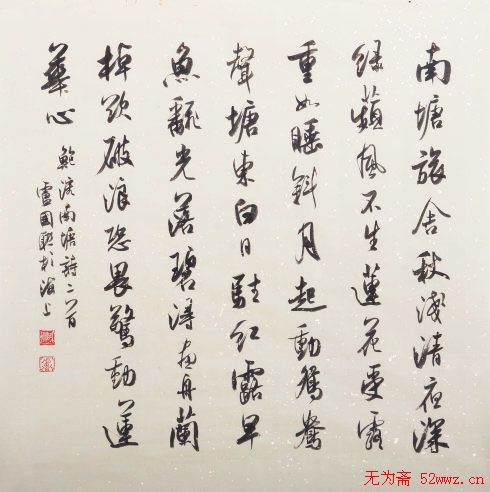 南塘旅舍秋淺清夜深
綠蘋風不生蓮花受露
重如睡斜月起動鴛鴦
聲塘東白日駐紅露早
魚翻光落碧潯畫舟蘭
棹欲破浪恐畏驚動蓮
華心
鮑溶南塘詩二首
盧國於海上
无为斋 52wwz.cn